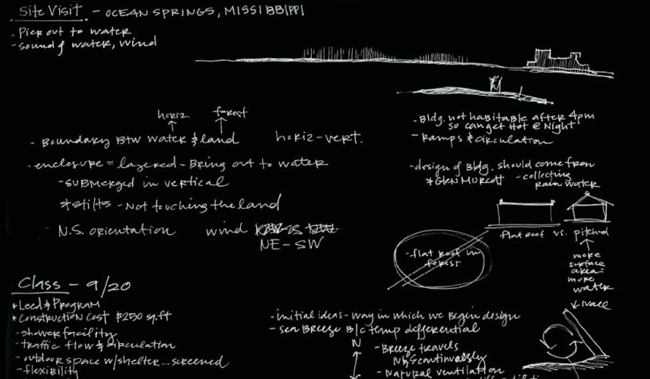 Site Visit - OCEAN SPRINGS, MISSISSIPPI
- Pier out to water
- sound of water, wind
horiz. forest
- Boundary Btw water & land horiz-vert.
- enclosure = layered - Bring out to water
- submerged in vertical
* stilts - Not touching the land
- N.S. orientation wind
NE-SW
- Bldg. not habitable after 4pm
so can get Hot @ Night
- Ramps & circulation
- design of Bldg. should come from
* Glen Murcott - collecting
rain water
flat roof vs. pitched
- flat roof in
forest
more
surface
area =
more
water
Class - 9/20
* Leed & Program
* Construction Cost $250 sq.ft
- shower facility
- traffic flow & circulation
- outdoor space w/ shelter... screened
- flexibility
- initial ideas - way in which we begin design
- sea Breeze B/c temp differential
N
- Breeze travels
N/S continuously
- Natural ventilation